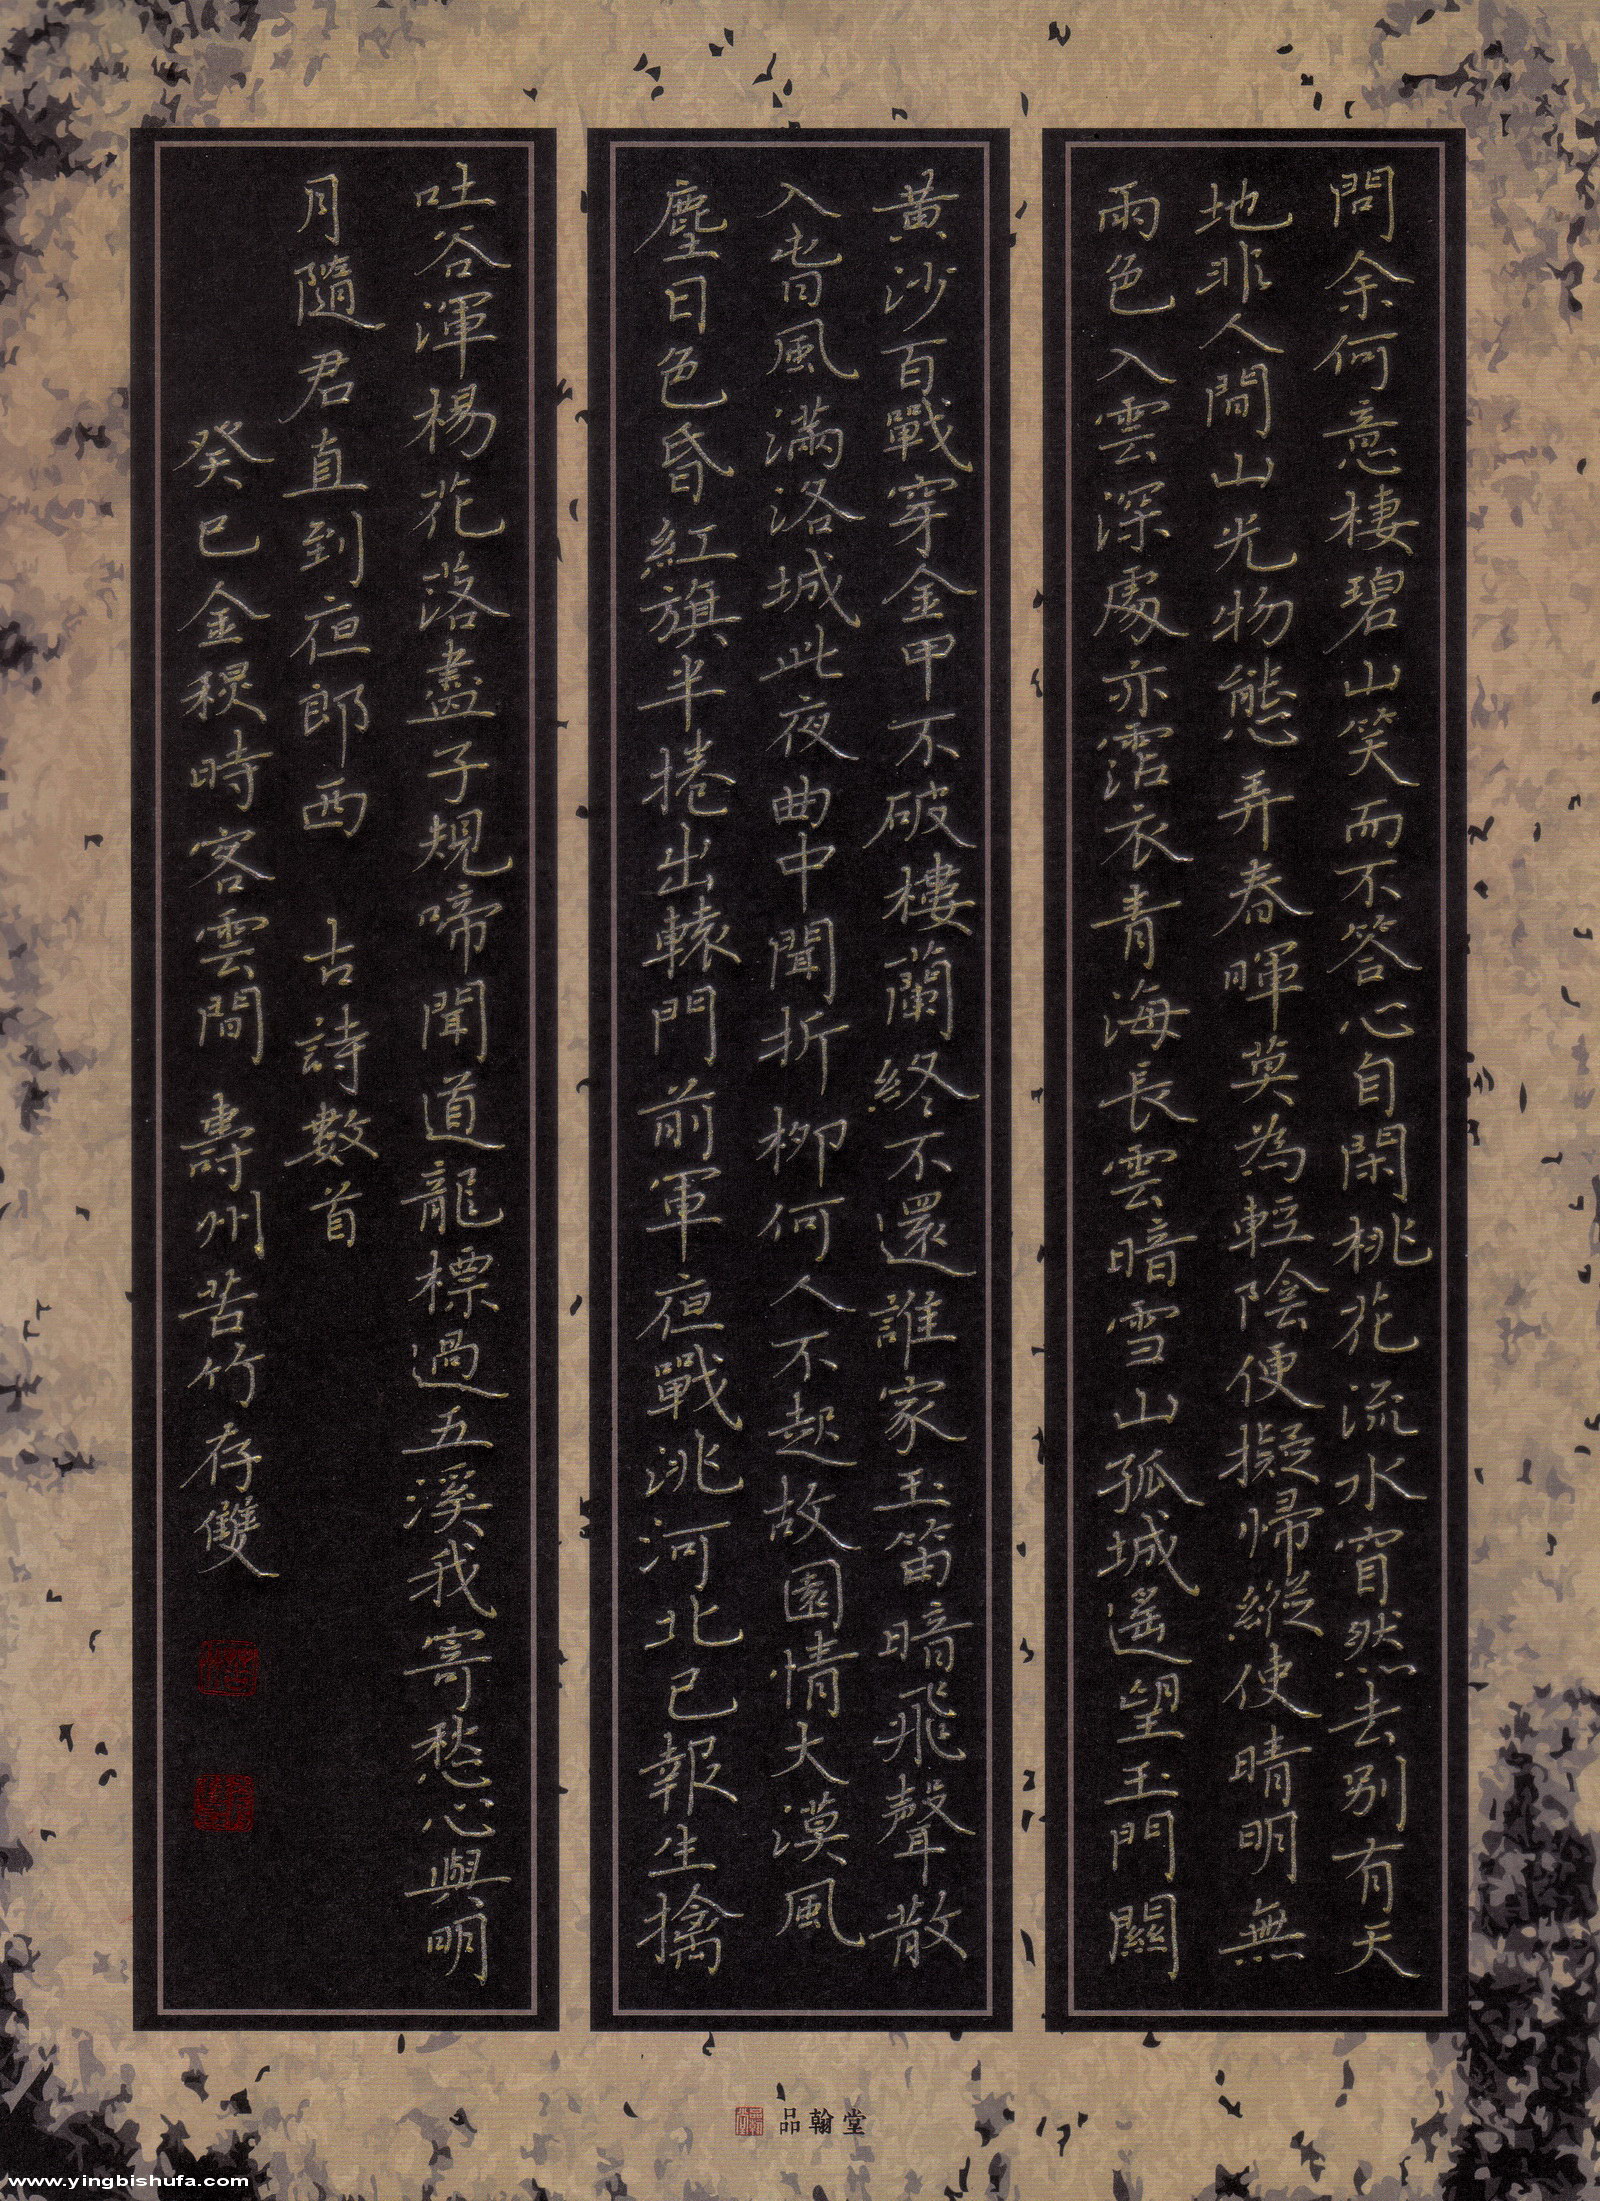 問余何意棲碧山笑而不答心自閑桃花流水窅然去別有天
地非人間山光物態弄春暉莫為輕陰便擬歸縱使晴明無
雨色入雲深處亦霑衣青海長雲暗雪山孤城遙望玉門關
黃沙百戰穿金甲不破樓蘭終不還誰家玉笛暗飛聲散
入春風滿洛城此夜曲中聞折柳何人不起故園情大漠風
塵日色昏紅旗半捲出轅門前軍夜戰洮河北已報生擒
吐谷渾楊花落盡子規啼聞道龍標過五溪我寄愁心與明
月隨君直到夜郎西 古詩數首
癸巳金秋時客雲間 壽州苦竹存雙
品翰堂
www.yingbishufa.com